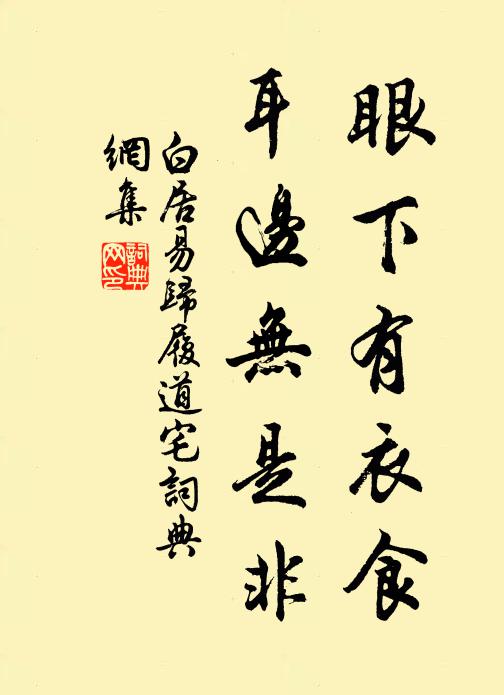 眼下有衣食
耳邊無是非
白居易歸履道宅詞典
網集
詞典
网印